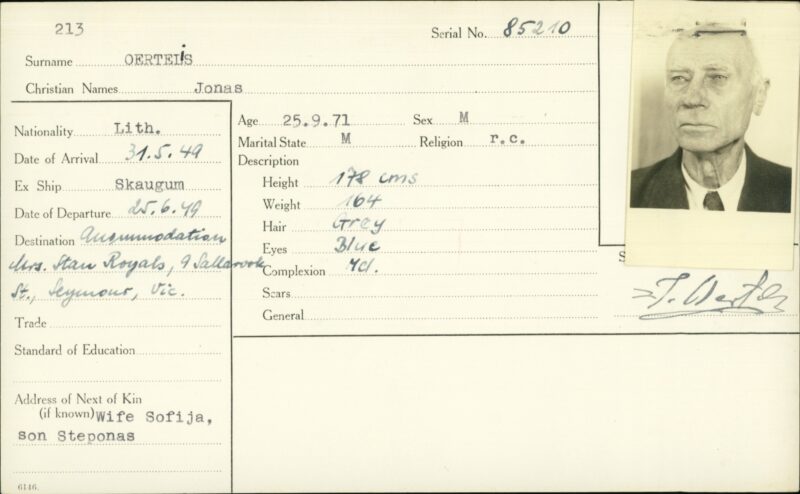 213
Serial No. 85210
Surname OERTELIS
Christian Names Jonas
Nationality Lith.
Date of Arrival 31.5.49
Ex Ship Skaugum
Date of Departure 25.6.49
Destination Accommodation
Mrs. Stan Royals, 9
St., Seymour, Vic.
Trade
Standard of Education
Address of Next of Kin
(if known) Wife Sofija,
son Steponas
6146.
Age 25.9.71 Sex M
Marital State M Religion r.c.
Description
Height 178 cms
Weight 164
Hair Grey
Eyes Blue
Complexion Md.
Scars
General